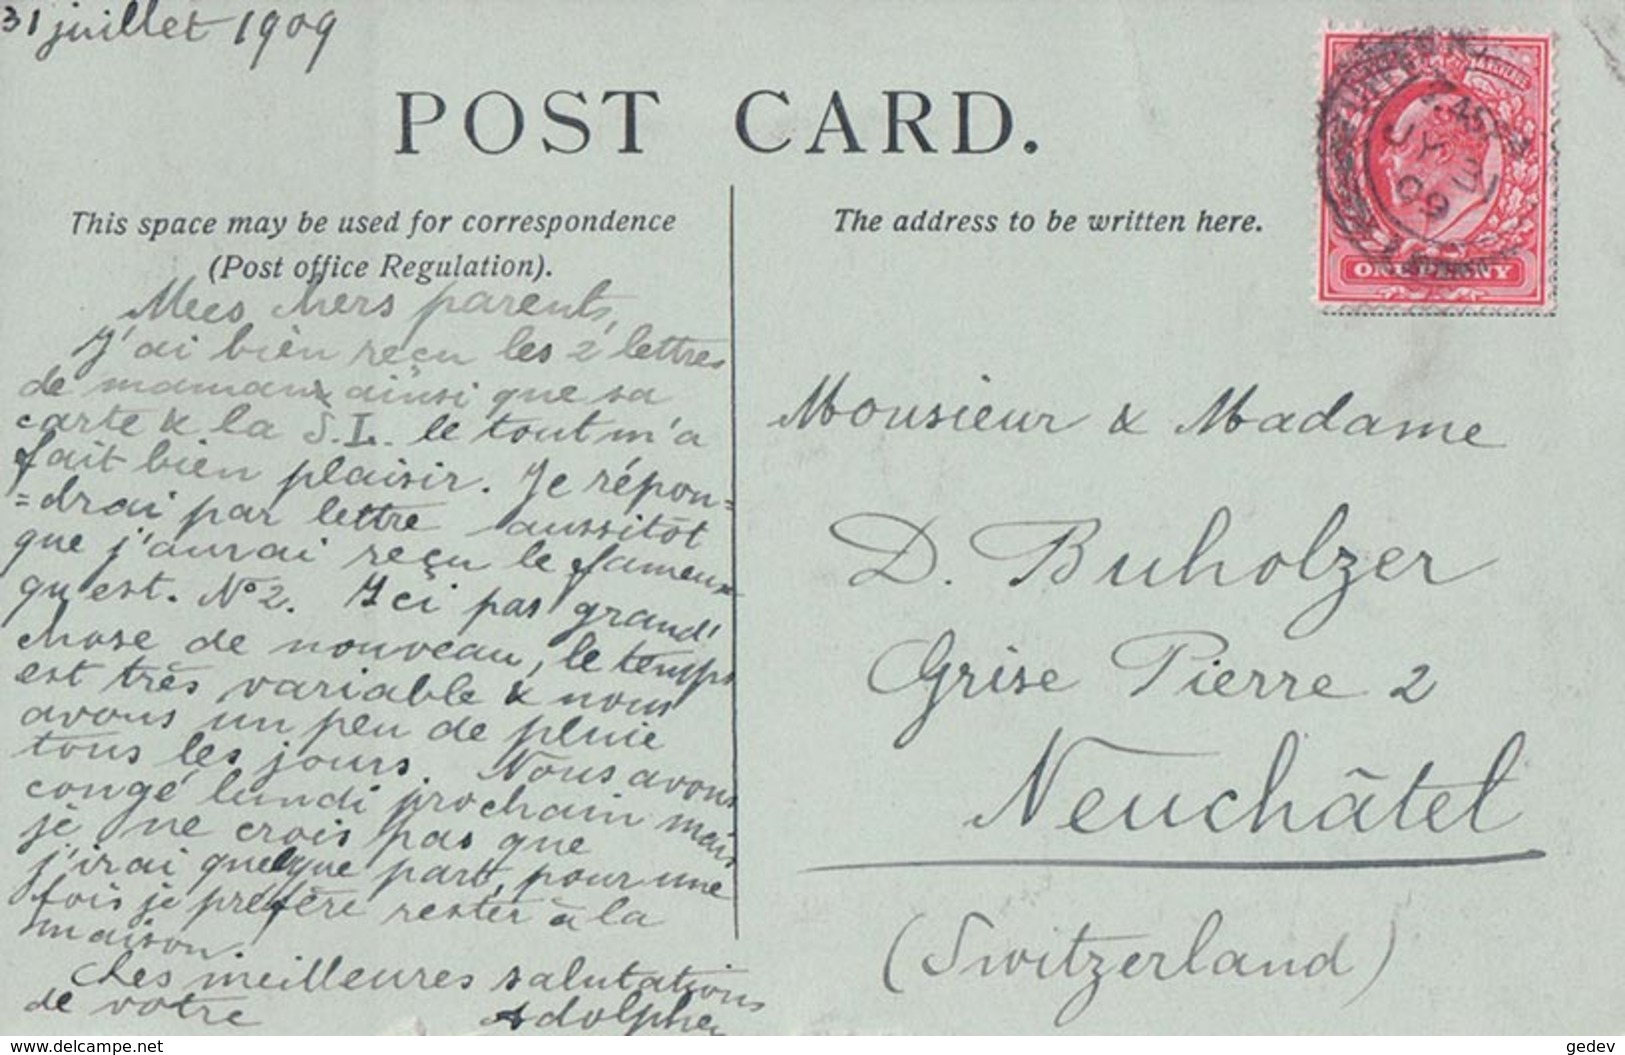 31 juillet 1909
POST CARD.
This space may be used for correspondence
(Post office Regulation).
The address to be written here.
ONE PENNY
JY 31
09
Mes chers parents,
J'ai bien reçu les 2 lettres
de maman ainsi que sa
carte & la S.L. le tout m'a
fait bien plaisir. Je répon=
=drai par lettre aussitôt
que j'aurai reçu le fameux
quest. No 2. Ici pas grand'
chose de nouveau, le temps
est très variable & nous
avons un peu de pluie
tous les jours. Nous avons
congé lundi prochain mais
je ne crois pas que
j'irai quelque part, pour une
fois je préfère rester à la
maison.
Les meilleures salutations
de votre Adolphe
Monsieur & Madame
D. Buholzer
Grise Pierre 2
Neuchâtel
(Switzerland)
www.delcampe.net
gedev